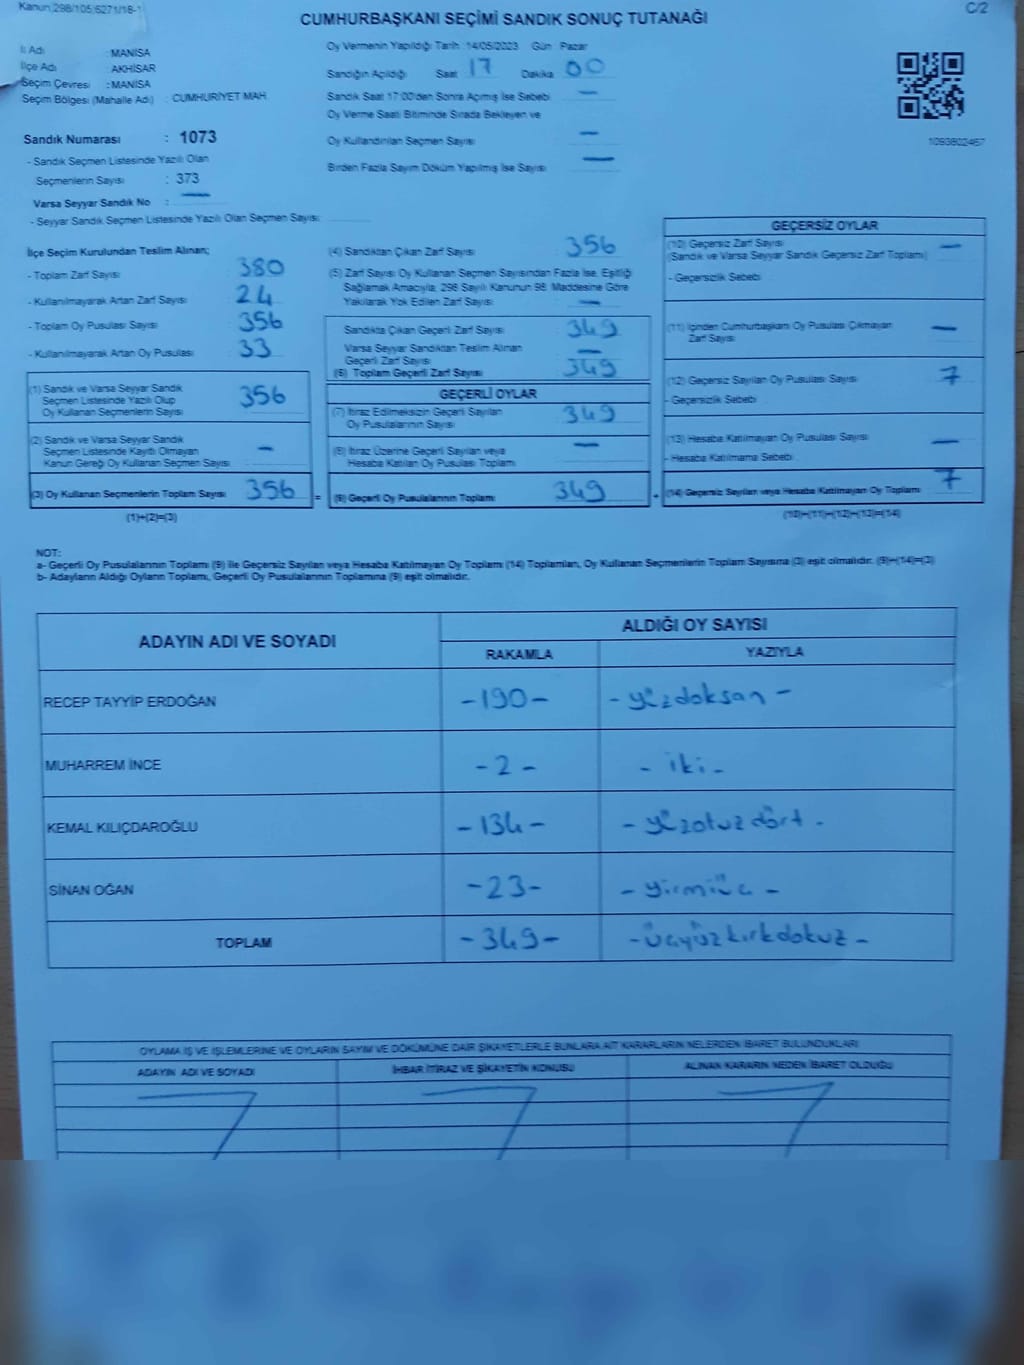 Kanun:298/105,6271/18-1
C/2
CUMHURBAŞKANI SEÇİMİ SANDIK SONUÇ TUTANAĞI
İl Adı : MANİSA
İlçe Adı : AKHİSAR
Seçim Çevresi : MANİSA
Seçim Bölgesi (Mahalle Adı) : CUMHURİYET MAH.
Oy Vermenin Yapıldığı Tarih : 14/05/2023 Gün : Pazar
Sandığın Açıldığı Saat 17 Dakika 00
Sandık Saat 17:00'den Sonra Açımış İse Sebebi —
Oy Verme Saati Bitiminde Sırada Bekleyen ve
Oy Kullandırılan Seçmen Sayısı —
Birden Fazla Sayım Döküm Yapılmış İse Sayısı —
1093802467
Sandık Numarası : 1073
- Sandık Seçmen Listesinde Yazılı Olan
Seçmenlerin Sayısı : 373
Varsa Seyyar Sandık No : —
- Seyyar Sandık Seçmen Listesinde Yazılı Olan Seçmen Sayısı:
İlçe Seçim Kurulundan Teslim Alınan;
- Toplam Zarf Sayısı : 380
- Kullanılmayarak Artan Zarf Sayısı : 24
- Toplam Oy Pusulası Sayısı : 356
- Kullanılmayarak Artan Oy Pusulası : 33
(1) Sandık ve Varsa Seyyar Sandık
Seçmen Listesinde Yazılı Olup
Oy Kullanan Seçmenlerin Sayısı : 356
(2) Sandık ve Varsa Seyyar Sandık
Seçmen Listesinde Kayıtlı Olmayan
Kanun Gereği Oy Kullanan Seçmen Sayısı : —
(3) Oy Kullanan Seçmenlerin Toplam Sayısı : 356 =
(1)+(2)=(3)
(4) Sandıktan Çıkan Zarf Sayısı : 356
(5) Zarf Sayısı Oy Kullanan Seçmen Sayısından Fazla İse, Eşitliği
Sağlamak Amacıyla, 298 Sayılı Kanunun 98. Maddesine Göre
Yakılarak Yok Edilen Zarf Sayısı : —
Sandıkta Çıkan Geçerli Zarf Sayısı : 349
Varsa Seyyar Sandıktan Teslim Alınan
Geçerli Zarf Sayısı : —
(6) Toplam Geçerli Zarf Sayısı : 349
GEÇERLİ OYLAR
(7) İtiraz Edilmeksizin Geçerli Sayılan
Oy Pusulalarının Sayısı : 349
(8) İtiraz Üzerine Geçerli Sayılan veya
Hesaba Katılan Oy Pusulası Toplamı : —
(9) Geçerli Oy Pusulalarının Toplamı : 349 +
GEÇERSİZ OYLAR
(10) Geçersiz Zarf Sayısı : —
(Sandık ve Varsa Seyyar Sandık Geçersiz Zarf Toplamı)
- Geçersizlik Sebebi :
(11) İçinden Cumhurbaşkanı Oy Pusulası Çıkmayan
Zarf Sayısı : —
(12) Geçersiz Sayılan Oy Pusulası Sayısı : 7
- Geçersizlik Sebebi :
(13) Hesaba Katılmayan Oy Pusulası Sayısı : —
- Hesaba Katılmama Sebebi :
(14) Geçersiz Sayılan veya Hesaba Katılmayan Oy Toplamı : 7
(10)+(11)+(12)+(13)=(14)
NOT:
a- Geçerli Oy Pusulalarının Toplamı (9) ile Geçersiz Sayılan veya Hesaba Katılmayan Oy Toplamı (14) Toplamları, Oy Kullanan Seçmenlerin Toplam Sayısına (3) eşit olmalıdır. (9)+(14)=(3)
b- Adayların Aldığı Oyların Toplamı, Geçerli Oy Pusulalarının Toplamına (9) eşit olmalıdır.
ADAYIN ADI VE SOYADI
ALDIĞI OY SAYISI
RAKAMLA YAZIYLA
RECEP TAYYİP ERDOĞAN -190- -yüzdoksan-
MUHARREM İNCE -2- -iki-
KEMAL KILIÇDAROĞLU -134- -yüzotuzdört-
SİNAN OĞAN -23- -yirmiüç-
TOPLAM -349- -üçyüzkırkdokuz-
OYLAMA İŞ VE İŞLEMLERİNE VE OYLARIN SAYIM VE DÖKÜMÜNE DAİR ŞİKAYETLERLE BUNLARA AİT KARARLARIN NELERDEN İBARET BULUNDUKLARI
ADAYIN ADI VE SOYADI
İHBAR İTİRAZ VE ŞİKAYETİN KONUSU
ALINAN KARARIN NEDEN İBARET OLDUĞU